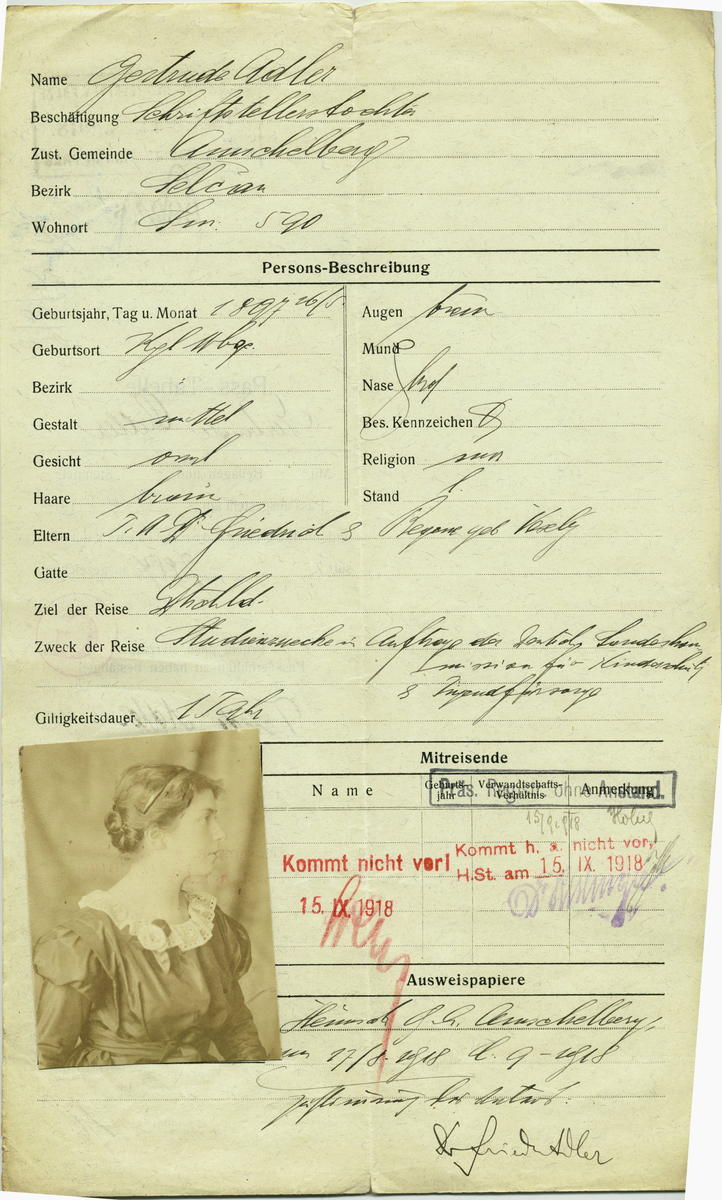 Name Gertrude Adler
Beschäftigung Schriftstellerstochter
Zust. Gemeinde Amschelberg
Bezirk Selčan
Wohnort Sm. 590
Persons-Beschreibung
Geburtsjahr, Tag u. Monat 1897 26/5.
Geburtsort Kgl Wbge.
Bezirk
Gestalt mittel
Gesicht oval
Haare braun
Augen braun
Mund
Nase
Bes. Kennzeichen
Religion
Stand l.
Eltern Dr Friedrich & Regine geb Vesely
Gatte
Ziel der Reise Dtschld.
Zweck der Reise Studienzwecke im Auftrage der Deutsch. Landeskom
mission für Kinderschutz
& Jugendfürsorge
Giltigkeitsdauer 1 Jahr
Mitreisende
Name
Geburts-jahr
Verwandtschafts-Verhältnis
Anmerkung
Präs. Reg. ohne Anstand.
15/9 1918
Kommt nicht vor!
15. IX. 1918
Kommt h. a. nicht vor,
H.St. am 15. IX. 1918
Ausweispapiere
Heimsch. Amschelberg,
17/8. 1918 9-1918
Zustimmung
Dr Friedr Adler